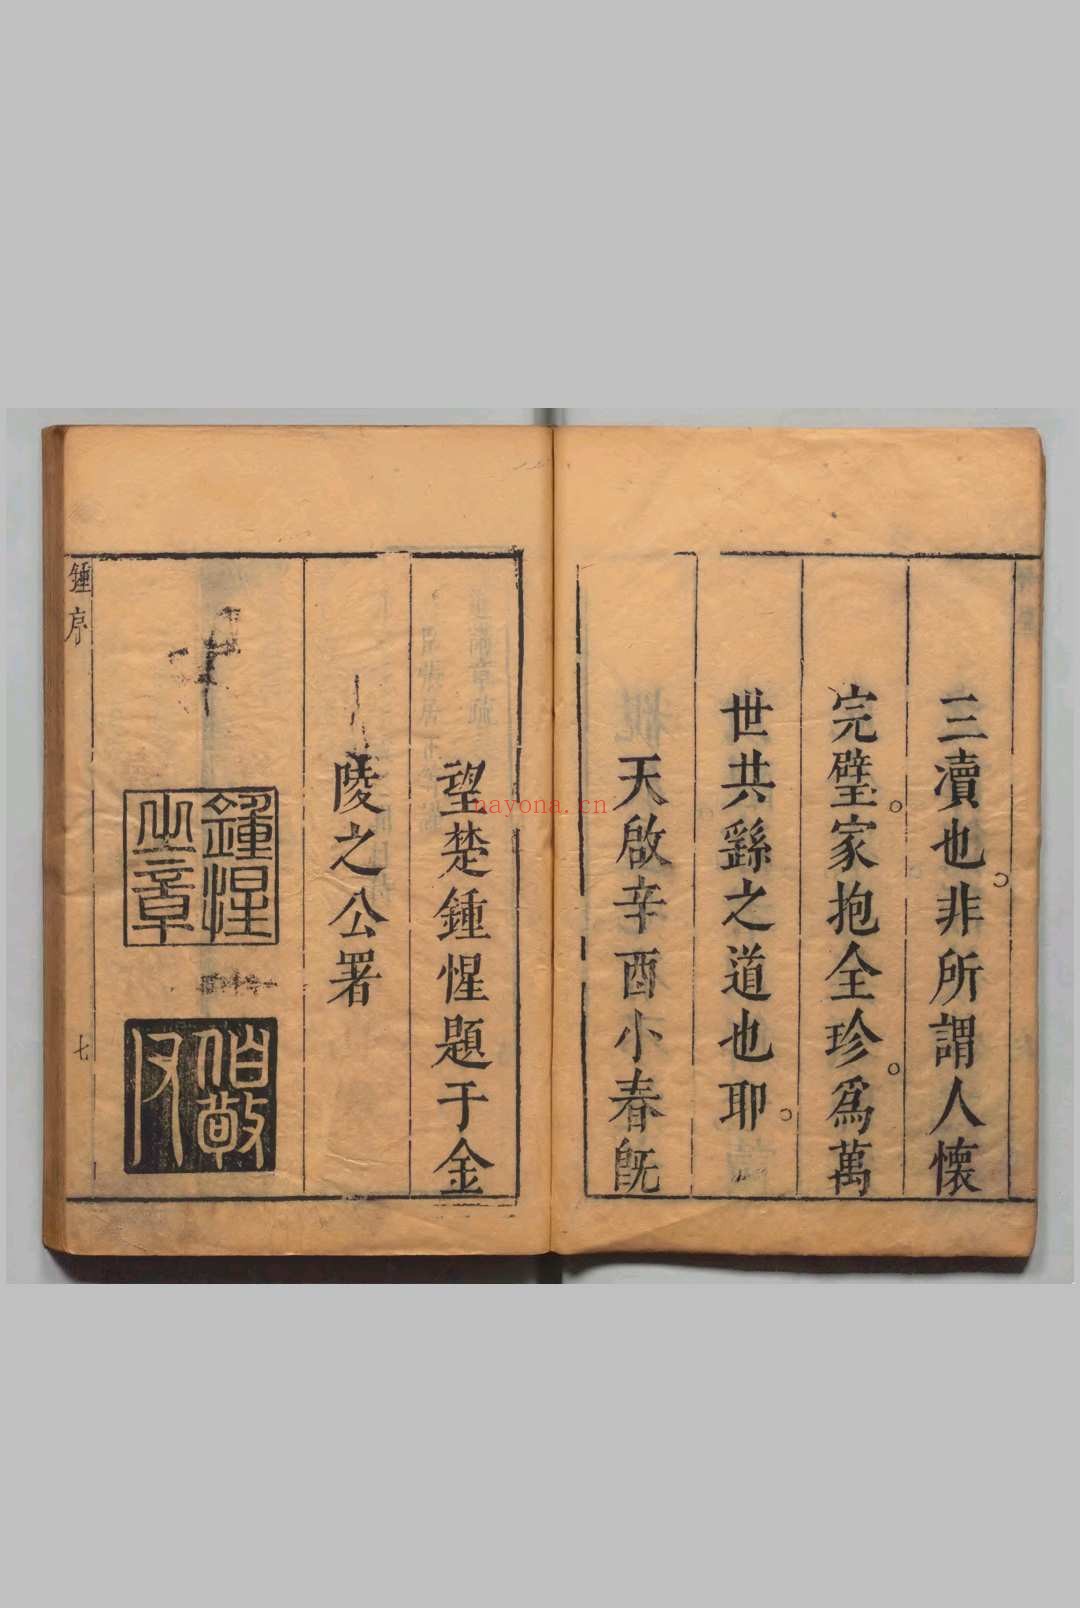 三瀆也。非所謂人懷
完璧。家抱全珍。爲萬
世共繇之道也耶。
天啟辛酉小春旣
望楚鍾惺題于金
陵之公署
鍾惺之章
伯敬父
鍾序
七
nayona.cn